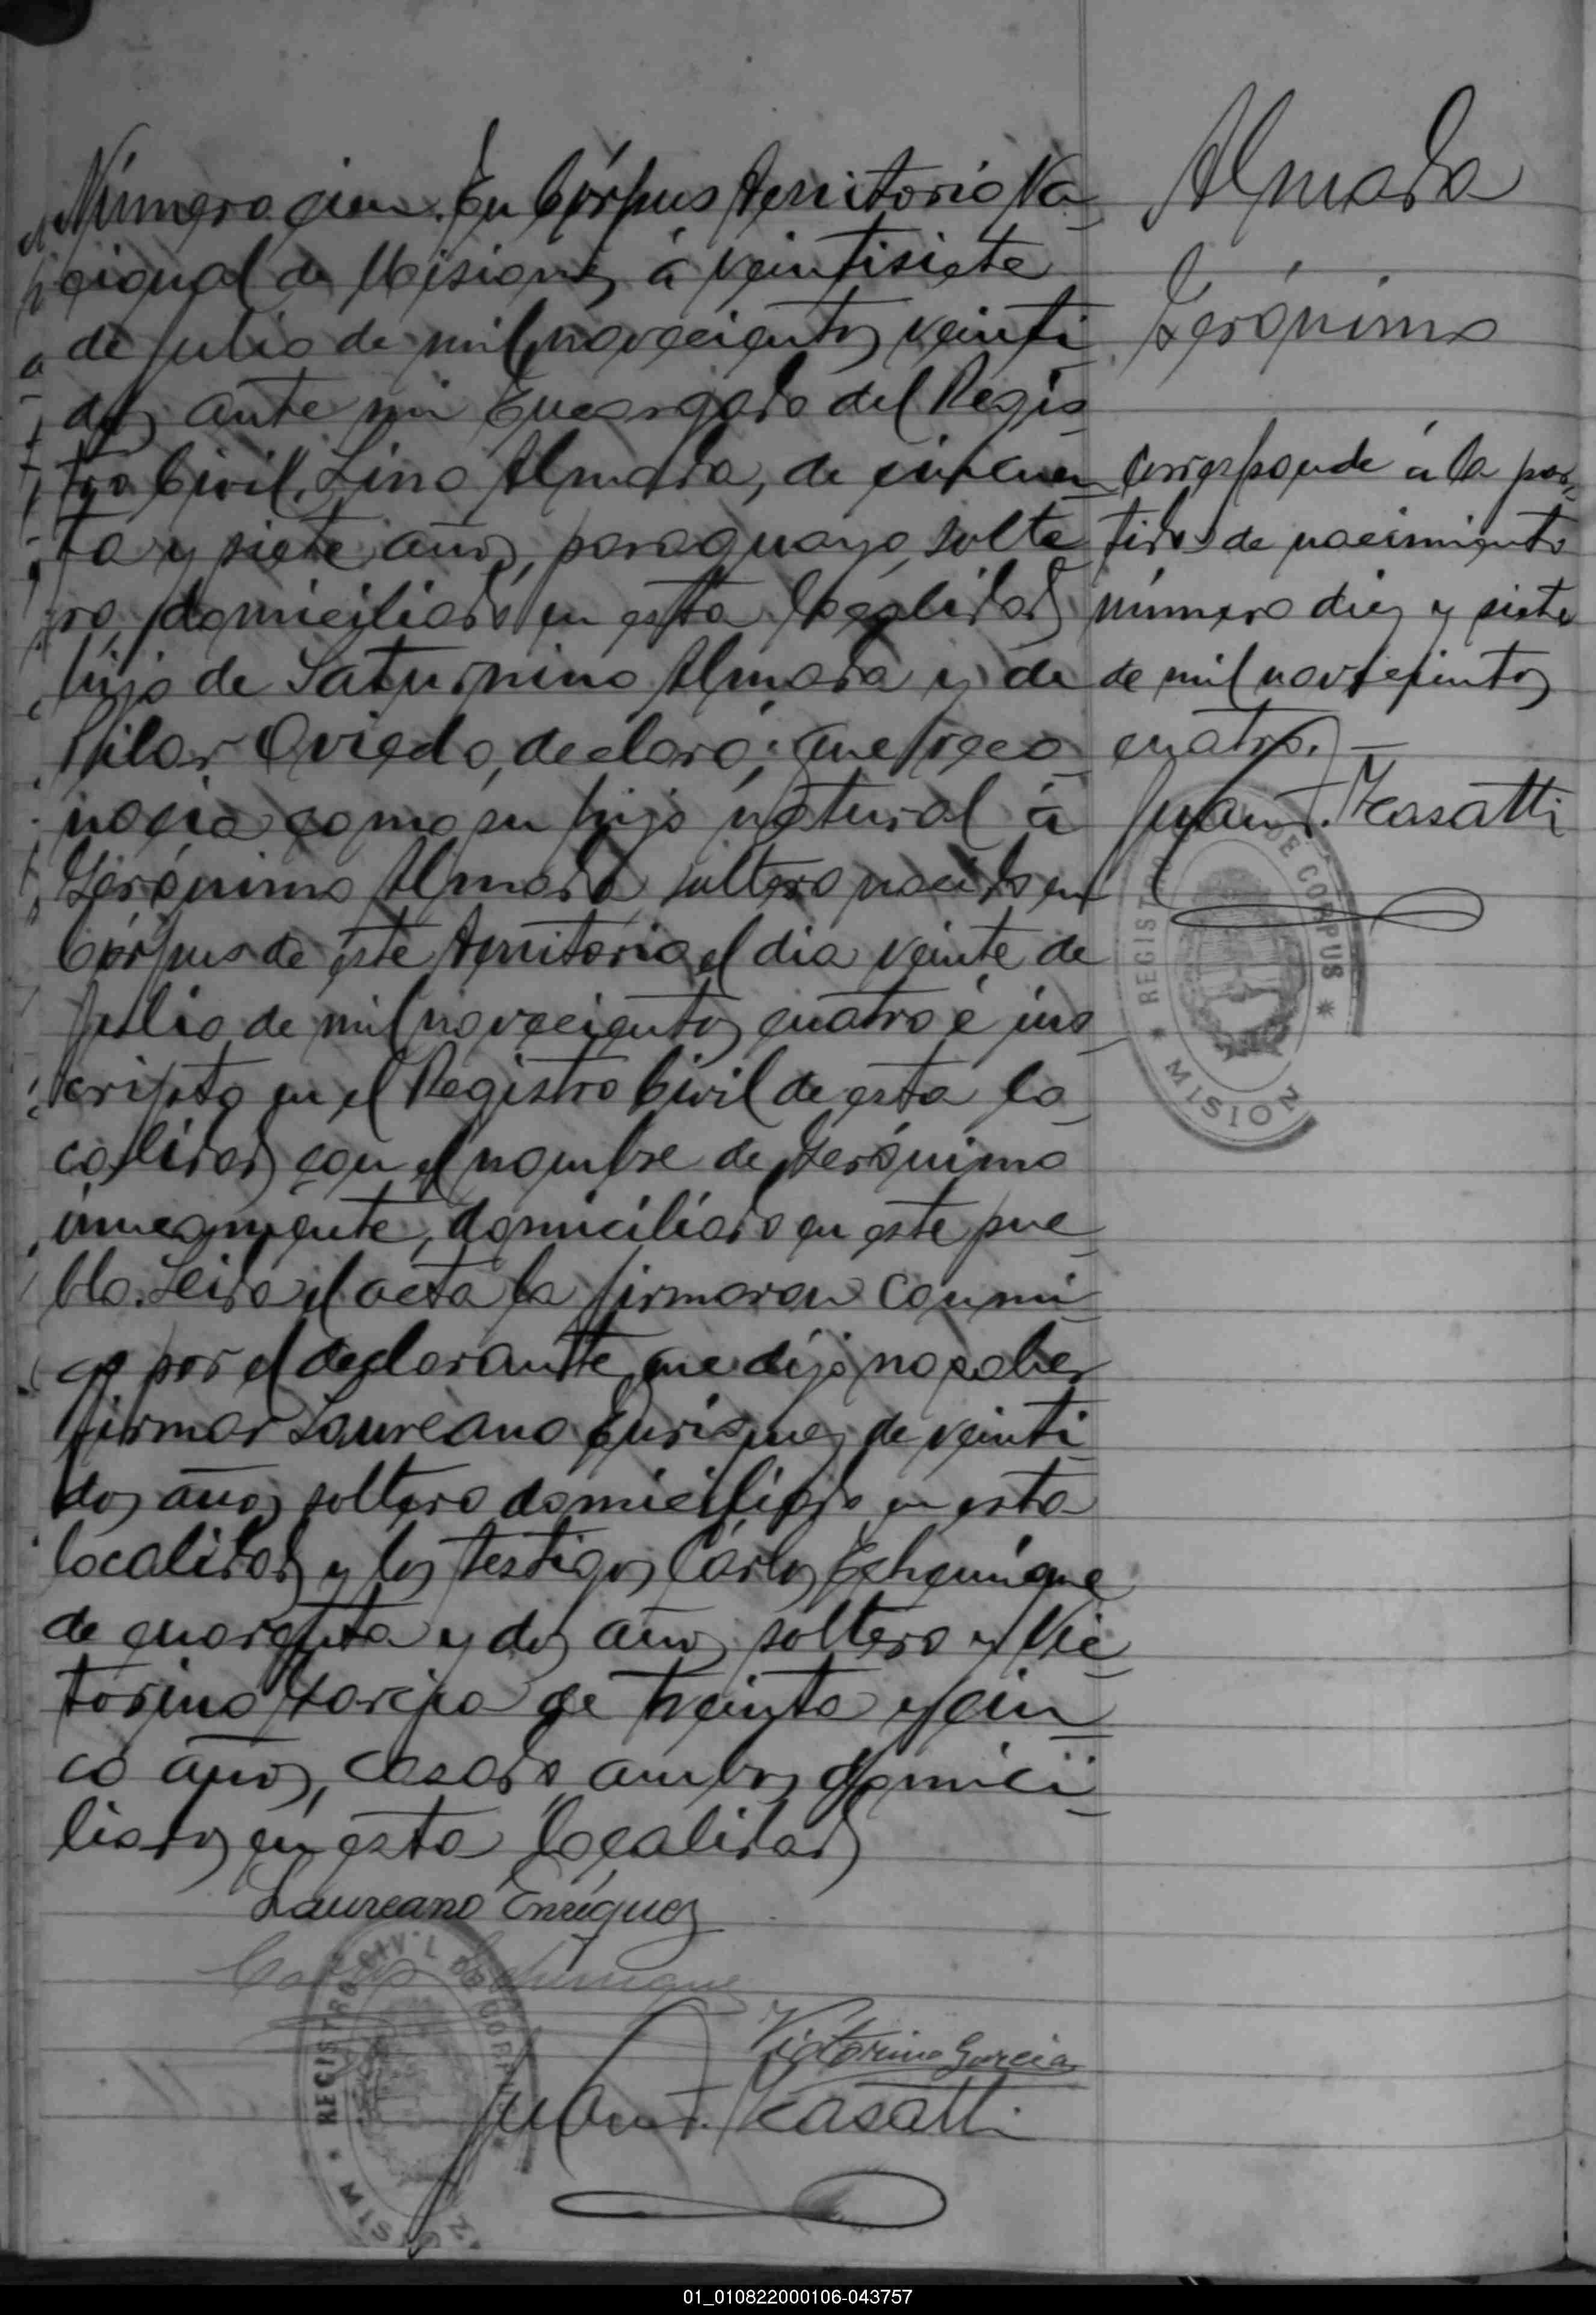 Número cien. En Córpus Territorio Na-
cional de Misiones á veintisiete
de Julio de mil novecientos veinti-
dos ante mi Encargado del Regis-
tro Civil, Lino Almada, de cincuen-
ta y siete años, paraguayo, solte-
ro, domiciliado en esta localidad
hijo de Saturnino Almada y de
Pilar Oviedo, declaró: que reco-
nocia como su hijo natural á
Gerónimo Almada soltero nacido en
Córpus de éste Territorio el dia veinte de
Julio de mil novecientos cuatro é ins-
cripto en el Registro Civil de esta lo-
calidad con el nombre de Gerónimo
únicamente, domiciliado en este pue-
blo. Leida el acta la firmaron conmi-
go por el declarante que dijo no saber
firmar Laureano Enrisquez de veinti-
dos años soltero domiciliado en esta
localidad y los testigos Cárlos Echenique
de cuarenta y dos años soltero y Vic-
torino Garcia de treinta y cin-
co años, casado, ambos domici-
liados en esta localidad
Laureano Enriquez
Carlos Echenique
Victorino Garcia
Juan T. Casatti
REGISTRO CIVIL DE CORPUS
* MISION
Almada
Gerónimo
Corresponde á la par-
tida de nacimiento
número diez y siete
de mil novecientos
cuatro.
Juan T. Casatti
REGISTRO DE CORPUS
* MISION
01_010822000106-043757